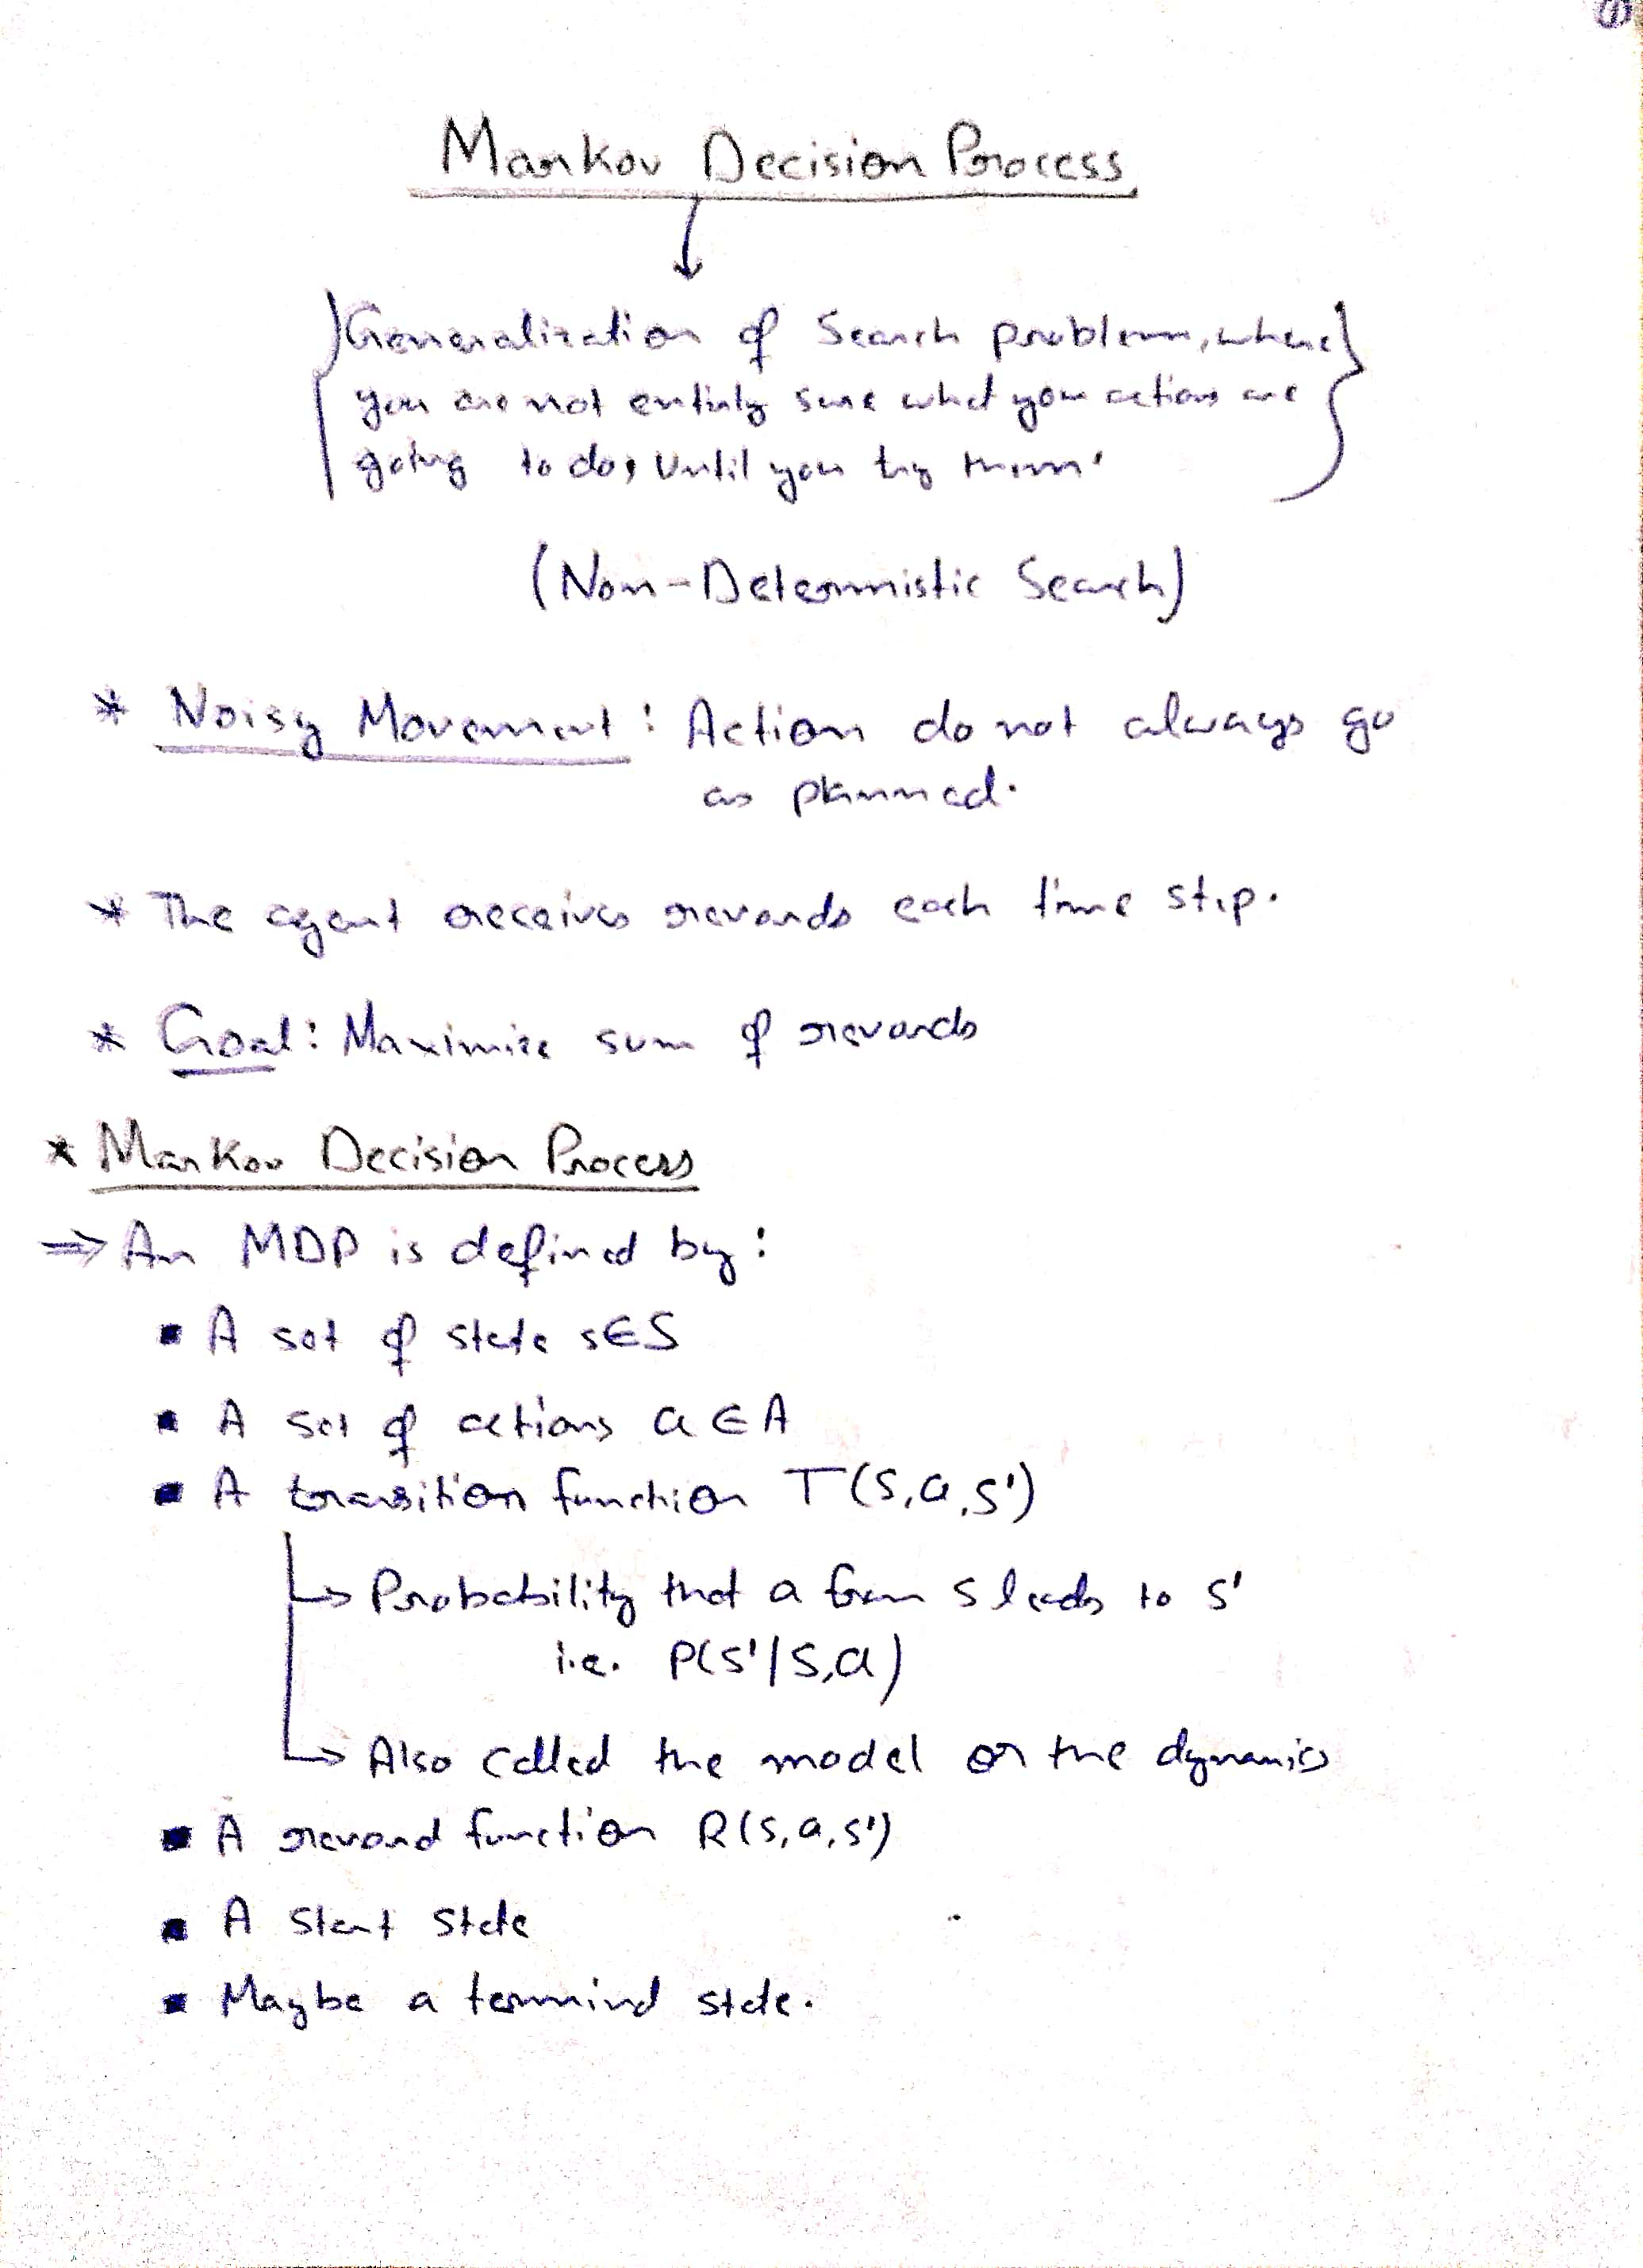 ①
Markov Decision Process
Generalization of Search problem, where
you are not entirly sure what your actions are
going to do, Until you try them.
(Non-Determnistic Search)
* Noisy Movement: Action do not always go
as planned.
* The agent receives rewards each time step.
* Goal: Maximize sum of rewards
* Markov Decision Process
⇒ An MDP is defined by:
▪ A set of state s∈S
▪ A set of actions a∈A
▪ A transition function T(s,a,s')
↳ Probability that a from s leads to s'
i.e. P(s'/s,a)
↳ Also called the model or the dynamics
▪ A reward function R(s,a,s')
▪ A start state
▪ Maybe a terminal state.